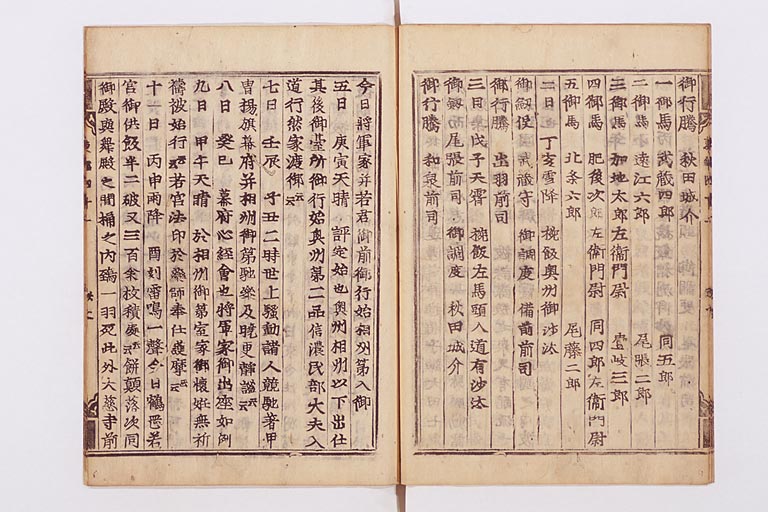 御行騰 秋田城介
一御馬 武蔵四郎 同五郎
二御馬 遠江六郎 尾張二郎
三御馬 加地太郎左衛門尉 壹岐三郎
四御馬 肥後次郎左衛門尉 同四郎左衛門尉
五御馬 北条六郎 尾藤二郎
二日 丁亥雪降 椀飯奥州御沙汰
御釼役 武蔵守 御調度 備前前司
御行騰 出羽前司
三日 戊子天霽 椀飯左馬頭入道有沙汰
御釼 尾張前司 御調度 秋田城介
御行騰 和泉前司
今日将軍家并若君御前御行始相州第入御
五日 庚寅天晴 評定始也奥州相州以下出仕
其後御臺所御行始奥州第二品信濃民部大夫入
道行然家渡御云云
七日 壬辰 子丑二時世上騒動諸人競馳著甲
冑揚旗幕府并相州御第馳參及晩更静謐云云
八日 癸巳 幕府心経會也将軍家御出座如例
九日 甲午天晴 於相州御第室家御懐妊無祈
禱被始行云云若宮法印於薬師奉仕護摩云云
十一日 丙申雨降 酉刻雷鳴一聲今日鶴岡若
宮御供飯半二破又三百余枚積處云云餅顛落次同
御殿與拝殿之間桶之内鵄一羽死此外大慈寺前